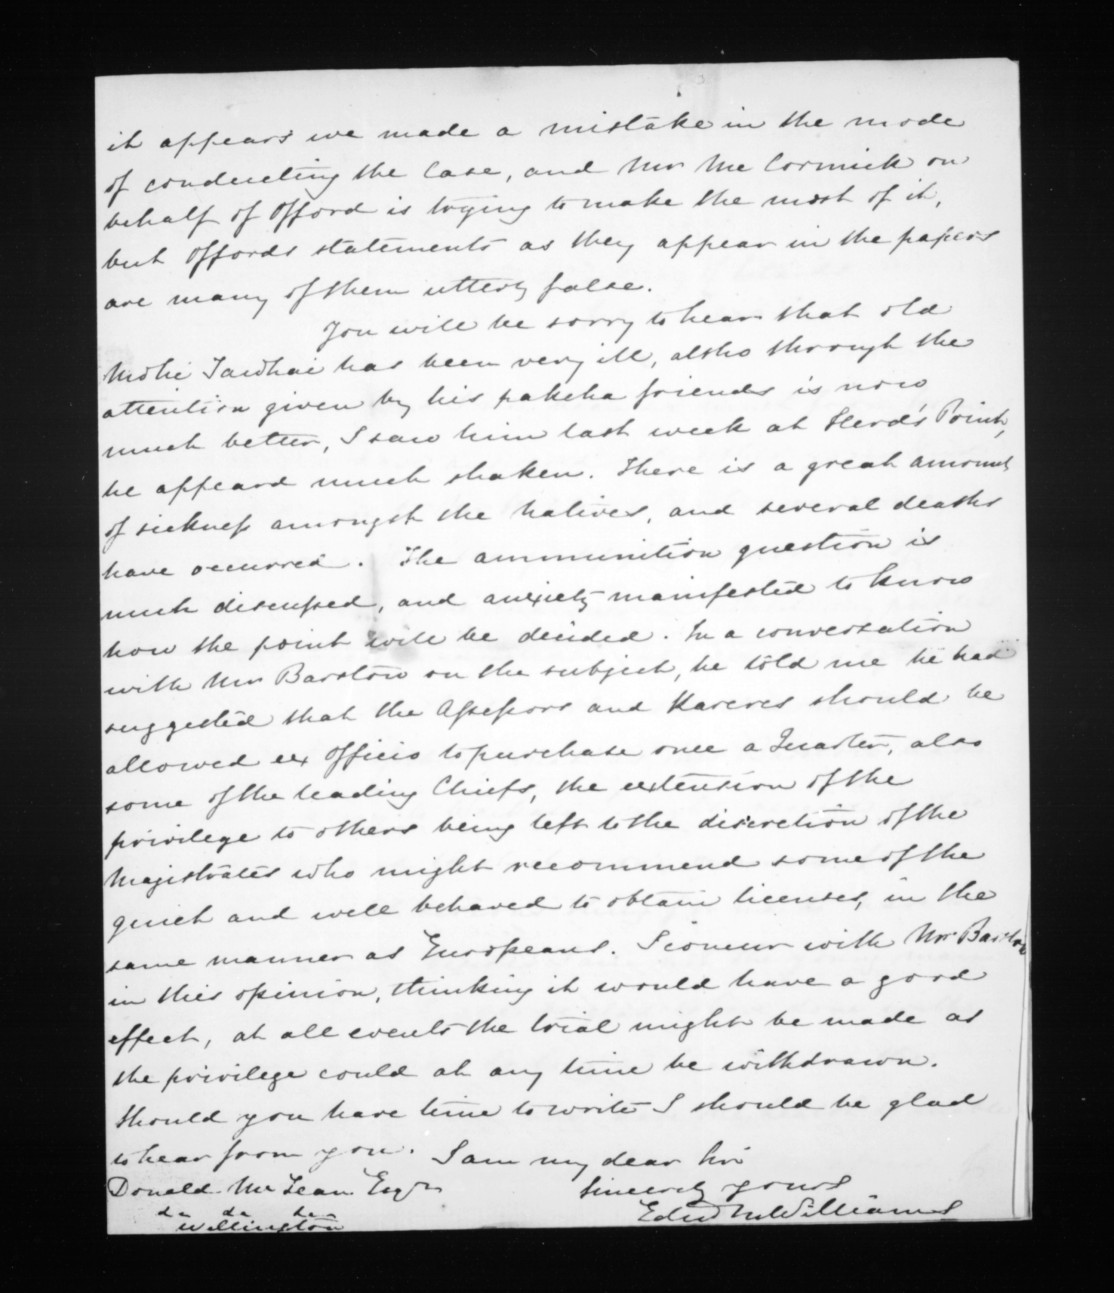 it appears we made a mistake in the mode
of conducting the Case, and Mr McCormick on
behalf of Offord is trying to make the most of it,
but Offords statements as they appear in the papers
are many of them utterly false.
You will be sorry to hear that old
Mohi Tawhai has been very ill, altho through the
attention given by his pakeha friends is now
much better, I saw him last week at Herd's Point,
he appeard much shaken. There is a great amount
of sickness amongst the Natives, and several deaths
have occurred. The ammunition question is
much discussed, and anxiety manifested to know
how the point will be decided. In a conversation
with Mr Barstow on the subject, he told me he had
suggested that the Assessors and Kareres should be
allowed ex Officio to purchase once a Quarter, also
some of the leading Chiefs, the extension of the
privilege to others being left to the discretion of the
Magistrates who might recommend some of the
quiet and well behaved to obtain licenses, in the
same manner as Europeans. I concur with Mr Barstow
in this opinion, thinking it would have a good
effect, at all events the trial might be made as
the privilege could at any time be withdrawn.
Should you have time to write I should be glad
to hear from you. I am my dear Sir
Donald McLean Esqr Sincerely yours
da da da Edwd M Williams
Wellington